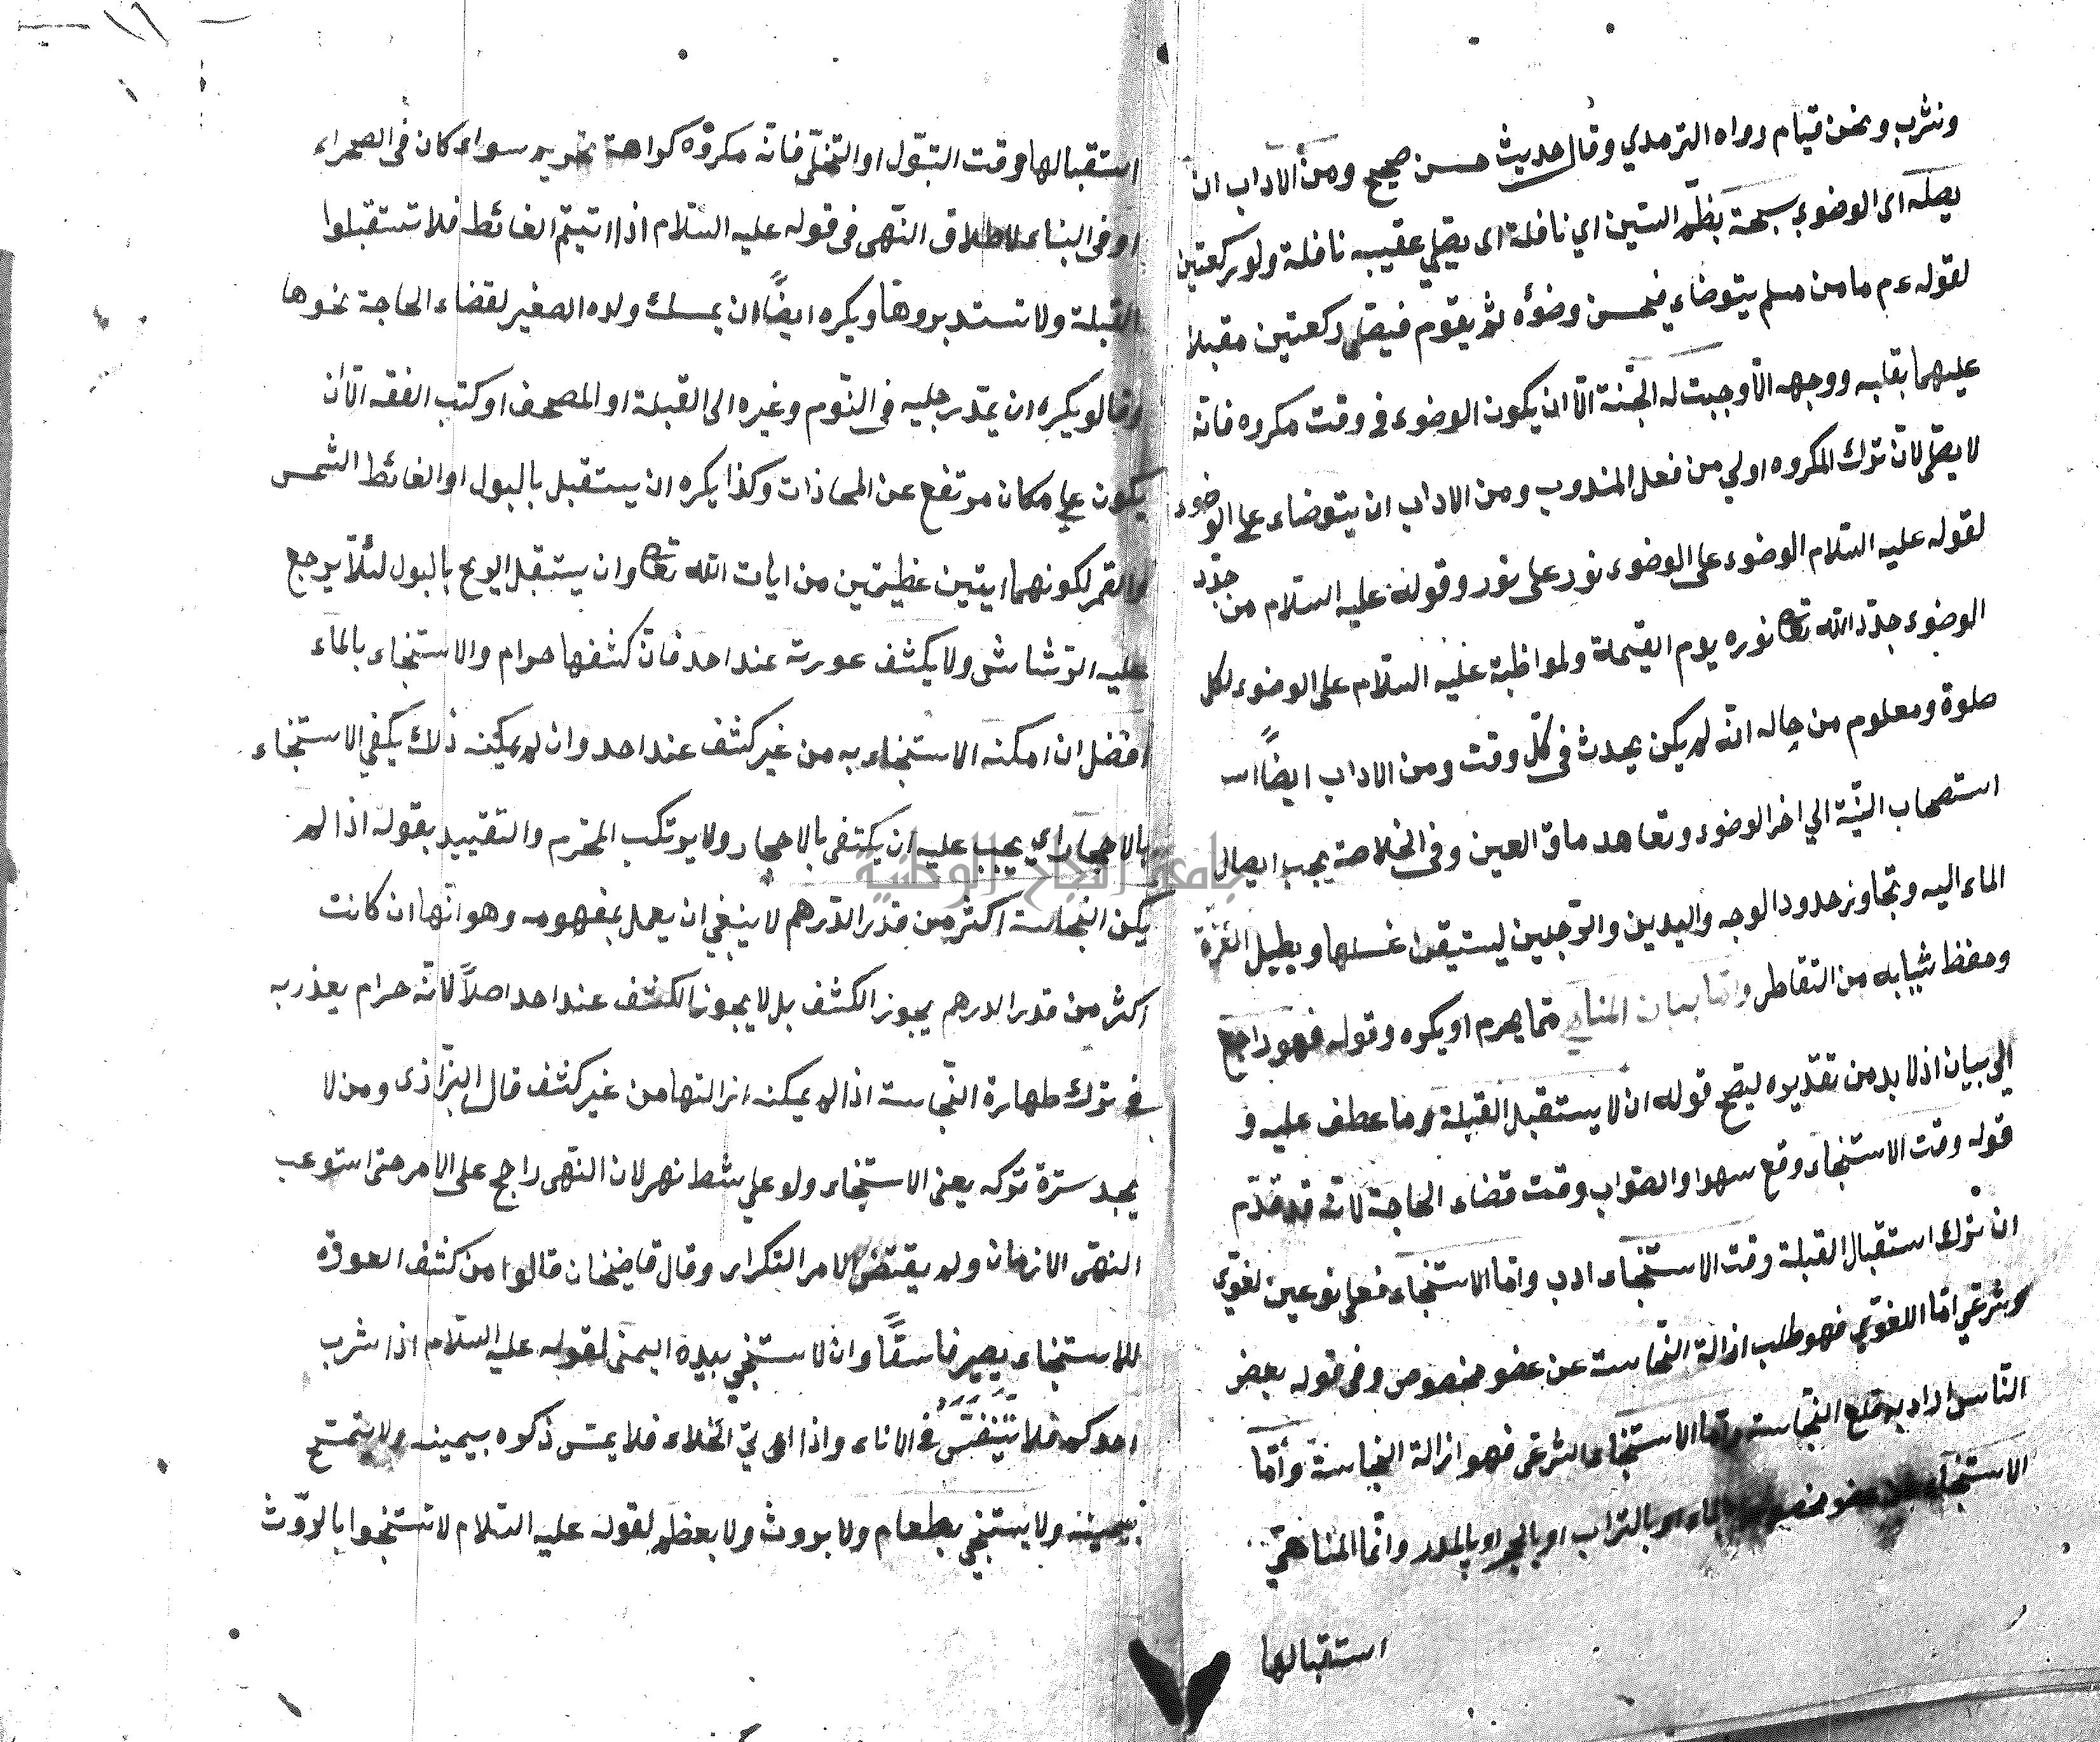 ونشرب ونحن قيام رواه الترمدي وقال حديث حسن صحيح ومن الاداب ان
يصله اى الوضوء بسبحة بضم السين اي نافلة اى يصلي عقيبه نافلة ولو ركعتين
لقوله ءم مامن مسلم يتوضاء فيحسن وضوئه ثم يقوم فيصلى ركعتين مقبلا
عليهما بقلبه ووجهه الا وجبت له الجنة الا ان يكون الوضوء في وقت مكروه فانه
لا يصلى لان ترك المكروه اولي من فعل المندوب ومن الاداب ان يتوضاء علي الوضوء
لقوله عليه السلام الوضوء على الوضوء نور على نور وقوله عليه السلام من جدد
الوضوء جدد الله تعا نوره يوم القيمة ولمواظبة عليه السلام على الوضوء لكل
صلوة ومعلوم من حاله انه لم يكن يحدث فى كل وقت ومن الاداب ايضاً اسـ
استصحاب النية الي اخر الوضوء وتعاهد ماق العين وفى الخلاصة يجب ايصال
الماء اليه وتجاوز حدود الوجه واليدين والرجلين ليستيقن غسلها ويطيل الغرة
وحفظ ثيابه من التقاطر واما بيان المناهي مما يحرم او يكره وقوله فهو راجع
الي بيان اذ لا بد من تقديره ليصح قوله ان لا يستقبل القبلة وما عطف عليه و
قوله وقت الاستنجاء وقع سهوا والصواب وقت قضاء الحاجة لانه قد قدم
ان ترك استقبال القبلة وقت الاستنجاء ادب واما الاستنجاء فعلى نوعين لغوي
وشرعي اما اللغوي فهو طلب ازالة النجاسة عن عضو مخصوص وفى قول بعض
الناس اراد به قلع النجاسة واما الاستنجاء الشرعى فهو ازالة النجاسة وأما
الاستنجاء عضو مخصوص بالماء او بالتراب او بالحجر او بالمدر واما المناهي
استقبالها
استقبالها وقت التبول او التخلى فانه مكروه كراهة تحريم سواء كان فى الصحراء
او فى البناء لاطلاق النهى فى قوله عليه السلام اذا اتيتم الغائط فلا تستقبلوا
القبلة ولا تستدبروها ويكره ايضاً ان يمسك ولده الصغير لقضاء الحاجة نحوها
وقالو يكره ان يمد رجليه فى النوم وغيره الى القبلة او المصحف او كتب الفقه الا ان
يكون علي مكان مرتفع عن المحاذات وكذا يكره ان يستقبل بالبول او الغائط الشمس
والقمر لكونهما ايتين عظيمتين من ايات الله تعا وان يستقبل الريح بالبول لئلا يرجع
عليه الرشاش ولا يكشف عورته عند احد فان كشفها حرام والاستنجاء بالماء
افضل ان امكنه الاستنجاء به من غير كشف عند احد وان لم يمكنه ذلك يكفي الاستنجاء
بالاحجار اي يجب عليه ان يكتفى بالاحجار ولا يرتكب المحرم والتقييد بقوله اذا لم
يكن النجاسة اكثر من قدر الدرهم لا ينبغي ان يعمل بمفهومه وهو انها ان كانت
اكثر من قدر الدرهم يجوز الكشف بل لا يجوز الكشف عند احد اصلاً لانه حرام يعذر به
في ترك طهارة النجاسة اذا لم يمكنه ازالتها من غير كشف قال البزازى ومن لا
يجد سترة تركه يعنى الاستنجاء ولو علي شط نهر لان النهى راجح على الامر حتى استوعب
النهى الازمان ولم يقتض الامر التكرار وقال قاضيخان قالوا من كشف العورة
للاستنجاء يصير فاسقاً وان لا يستنجي بيده اليمنى لقوله عليه السلام اذا شرب
احدكم فلا يتنفس في الاناء واذا اتى الخلاء فلا يمس ذكره بيمينه ولا يتمسح
بيمينه ولا يستنجي بطعام ولا بروث ولا بعظم لقوله عليه السلام لا تستنجوا بالروث
جامعة النجاح الوطنية